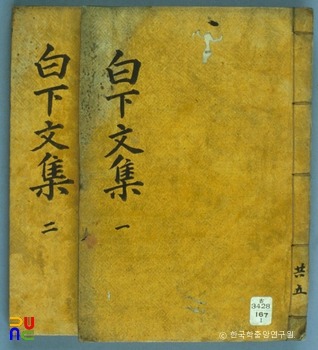 白下文集
一
共五
3428
167
1
白下文集
二
ⓒ 한국학중앙연구원